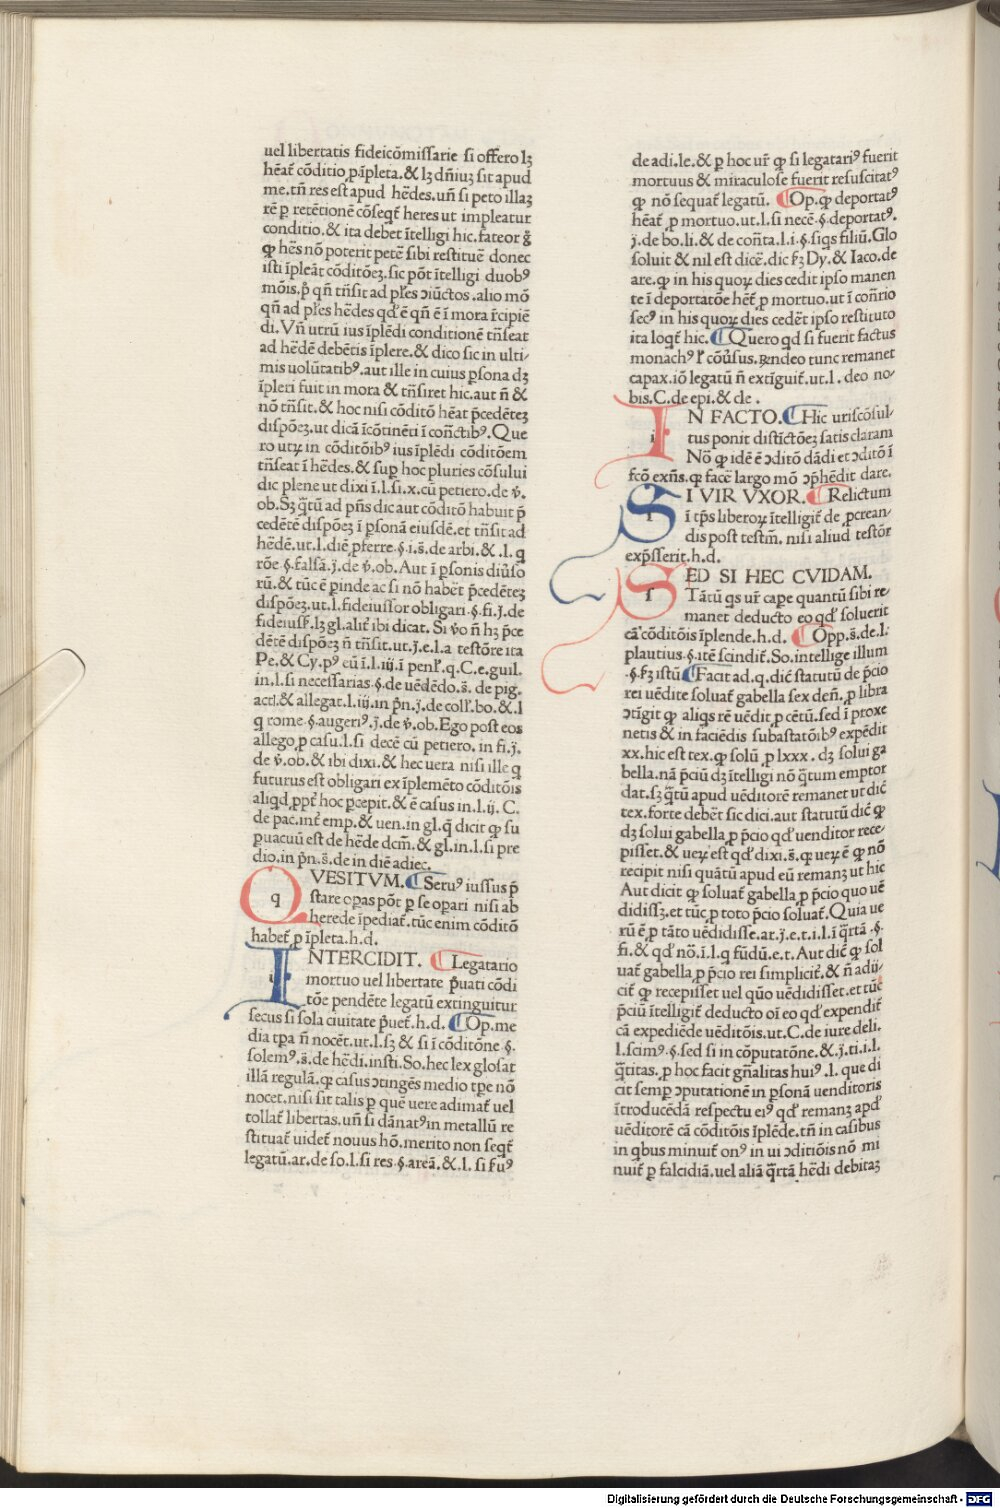 uel libertatis fideicōmissarie si offero lꝫ
hēat̉ cōditio ꝓ ip̄leta.& lꝫ dn̄iuꝫ sit apud
me.tn̄ res est apud hēdes.un̄ si peto illaꝫ
rē ꝑ retētionē cōseqt̉ heres ut impleatur
conditio.& ita debet ītelligi hic.fateor ḡ
ꝙ hēs nō poterit petē sibi restituē donec
isti īpleāt cōditōeꝫ.sic pōt ītelligi duobꝰ
mōis.p̊ qn̄ tn̄sit ad pr̄es ↄiūctos.alio mō
qn̄ ad pr̄es hēdes qd̓ ē qn̄ ē ī mora rc̄ipiē
di.Vn̄ utrū ius īplēdi conditionē tn̄seat
ad hēdē debētis īplere.& dico sic in ulti⸗
mis uolūtatibꝰ.aut ille in cuius ꝑsona dꝫ
īpleri fuit in mora & tn̄siret hic.aut n̄ &
nō tn̄sit.& hoc nisi cōditō hēat p̄cedēteꝫ
dispōeꝫ.ut dicā īcōtinēti ī con̄ctibꝰ.Que
ro utꝝ in cōditōibꝰ ius īplēdi cōditōem
tn̄seat ī hēdes.& suꝑ hoc pluries cōsului
dic plene ut dixi ī.l.si.x.cū petiero.de v̓.
ob.Sꝫ q̄tū ad pn̄s dic aut cōditō habuit p̄
cedētē dispōeꝫ ī ꝑsonā eiusdē.et tn̄sit ad
hēdē.ut.l.diē ꝓferre.§.i.s̄.de arbi.&.l.q
rōe §.falsā.j.de v̓.ob.Aut ī ꝑsonis diūso
rū.& tūc ē ꝑinde ac si nō habēt p̄cedēteꝫ
dispōeꝫ.ut.l.fideiussor obligari.§.fi.j.de
fideiuss̄.lꝫ gl.alit̉ ibi dicat. Si v̓o n̄ hꝫ p̄ce
dētē dispōeꝫ n̄ tn̄sit.ut.j.e.l.a testōre ita
Pe.& Cy.pꝰ eū ī.l.iij.ī penl̓.q.C.e.guil.
in.l.si necessarias.§.de uēdēdo.s̄. de pig.
act̉.& allegat.l.iij.in p̄n.j.de coll̓.bo.& l
q rome.§.augeriꝰ.j.de v̓.ob.Ego post eos
allego ꝓ casu.l.si decē cū petiero.in fi.j.
de v̓.ob.& ibi dixi.& hec uera nisi ille q
futurus est obligari ex īplemēto cōditōis
aliqd ꝓpt̉ hoc ꝑcepit.& ē casus in.l.ij. C.
de pac.int̉ emp.& uen.in gl.q̄ dicit ꝙ su
ꝑuacuū est de hēde dcm̄.& gl.in.l.si pre
dio.in p̄n.s̄.de in diē adiec.
QVESITVM.¶ Seruꝰ iussus p̄
stare opas pōt ꝑ se opari nisi ab
herede īpediat̉.tūc enim cōditō
habet̉ ꝓ īpleta.h.d.
INTERCIDIT. ¶Legatario
mortuo uel libertate p̄uati cōdi
tōe pendēte legatū extinguitur
secus si sola ciuitate p̄uet̉.h.d. ¶Op.me
dia tꝑa n̄ nocēt.ut.l.sꝫ & si ī cōditōne.§.
solemꝰ.s̄.de hēdi.insti.So.hec lex glosat
illā regulā.ꝙ casus ↄtingēs medio tꝑe nō
nocet.nisi sit talis ꝑ quē uere adimat̉ uel
tollat̉ libertas.un̄ si dānatꝰ in metallū re
stituat̉ uidet̉ nouus hō.merito non seqt̉
legatū.ar.de so.l.si res.§.areā.&.l.si fuꝰ
de adi.le.& ꝑ hoc ur̄ ꝙ si legatariꝰ fuerit
mortuus & miraculose fuerit resuscitatꝰ
ꝙ nō sequat̉ legatū. ¶Op.ꝙ deportatꝰ
hēat̉ ꝓ mortuo.ut.l.si necē.§.deportatꝰ.
j.de bo.li.& de con̄ta.l.i.§.siqs filiū.Glo
soluit & nil est dicē.dic sꝫ Dy.& Iaco.de
are.ꝙ in his quoꝝ dies cedit ipso manen
te ī deportatōe hēt̉ ꝓ mortuo.ut ī con̄rio
secꝰ in his quoꝝ dies cedēt ipso restituto
ita loqt̉ hic.¶Quero qd si fuerit factus
monachꝰ l̓ cōūsus.ꝶndeo tunc remanet
capax.iō legatū n̄ extīguit̉.ut.l. deo no⸗
bis.C.de epi.& de .
IN FACTO.¶Hic uriscōsul⸗
tus ponit distīctōeꝫ satis claram
Nō ꝙ idē ē ↄditō dādi et ↄditō ī
fcō exn̄s.ꝙ facē largo mō ↄp̄hēdit dare.
SI VIR VXOR. ¶Relictum
ī tp̄s liberoꝝ ītelligit̉ de ꝓcrean⸗
dis post testm̄. nisi aliud testōr
exp̄sserit.h.d.
SED SI HEC CVIDAM.
Tātū qs ur̄ caꝑe quantū sibi re⸗
manet deducto eo qd̓ soluerit
cā cōditōis īplende.h.d. ¶Opp.s̄.de.l.
plautius.§.itē scindit̉.So.intellige illum
.§.sꝫ istū¶Facit ad.q.dic̄ statutū de p̄cio
rei uēdite soluat̉ gabella sex den̄.ꝓ libra
ↄtīgit ꝙ aliqs rē uēdit ꝓ cētū.sed ī proxe
netis & in faciēdis subastatōibꝰ expēdit
xx.hic est tex.ꝙ solū ꝓ lxxx. dꝫ solui ga
bella.nā p̄ciū dꝫ ītelligi nō q̄tum emptor
dat.sꝫ q̄tū apud uēditorē remanet ut dic̄
tex.forte debēt sic dici.aut statutū dic̄ ꝙ
dꝫ solui gabella ꝓ p̄cio qd̓ uenditor rece⸗
pisset.& ueꝝ est qd̓ dixi.s̄.ꝙ ueꝝ ē ꝙ nō
recipit nisi quātū apud eū remanꝫ ut hic
Aut dicit ꝙ soluat̉ gabella ꝓ p̄cio quo uē
didissꝫ.et tūc ꝓ toto p̄cio soluat̉.Quia ue
rū ē ꝓ tāto uēdidisse.ar.j.e.t.i.l.ī q̄rtā.§.
fi.& qd̓ nō.ī.l.q fūdū.e.t.Aut dic̄ ꝙ sol
uat̉ gabella ꝓ p̄cio rei simplicit̉.& n̄ adij⸗
cit̉ ꝙ recepisset uel quo uēdidisset.et tūc
p̄ciū ītelligit̉ deducto oī eo qd̓ expendit̉
cā expediēde uēditōis.ut.C.de iure deli.
l.scimꝰ.§.sed si in cōputatōne.&.j.ti.i.l.
q̄titas.ꝓ hoc facit gn̄alitas huiꝰ.l. que di
cit semꝑ ↄputationē in ꝑsonā uenditoris
ītroducēdā respectu eiꝰ qd̓ remanꝫ apd̓
uēditorē cā cōditōis īplēde.tn̄ in casibus
in qbus minuit̉ onꝰ in ui ↄditiōis nō mi
nuit̉ ꝑ falcidiā.uel aliā q̄rtā hēdi debitaꝫ
Digitalisierung gefördert durch die Deutsche Forschungsgemeinschaft - DFG